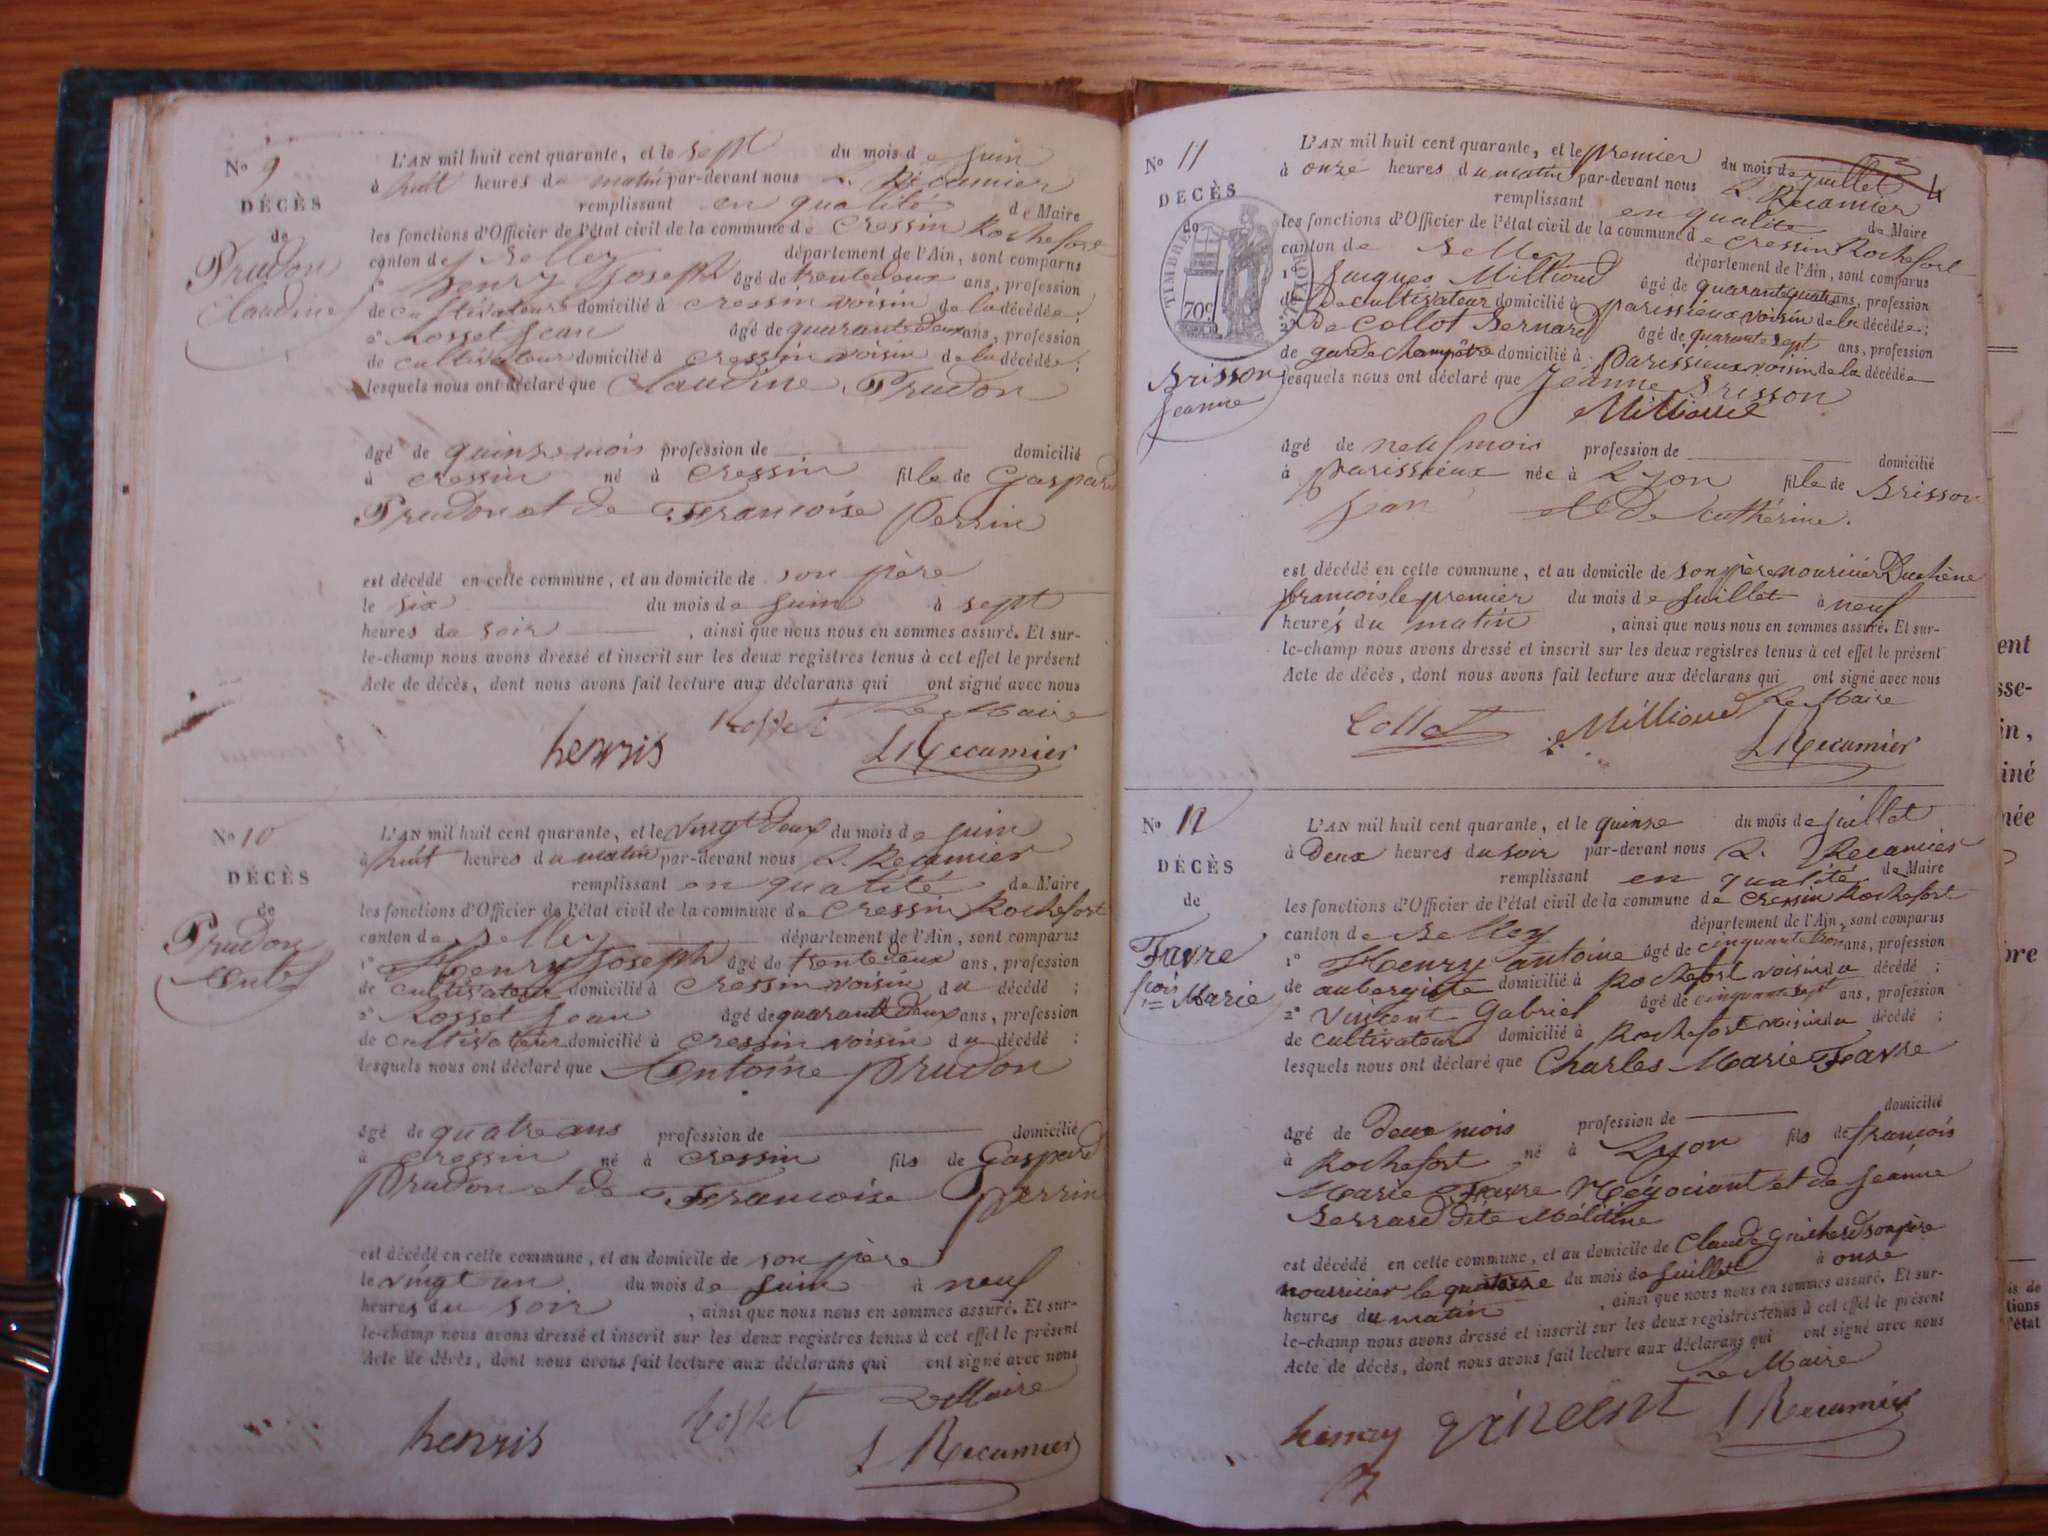 No 9
DÉCÈS
de
Prudon
Claudine
L'AN mil huit cent quarante, et le sept du mois de Juin
à huit heures du matin par-devant nous L. Récamier
remplissant en qualité de Maire
les fonctions d'Officier de l'état civil de la commune de Cressin Rochefort
canton de Belley département de l'Ain, sont comparus
1° henry Joseph âgé de trente deux ans, profession
de cultivateur domicilié à Cressin voisin de la décédée;
2° Rosset Jean âgé de quarante deux ans, profession
de cultivateur domicilié à Cressin voisin de la décédée;
lesquels nous ont déclaré que Claudine Prudon
âgé de quinze mois profession de domicilié
à Cressin né à Cressin fille de Gaspard
Prudon et de Francoise Perrin
est décédé en cette commune, et au domicile de son père
le six du mois de Juin à sept
heures du soir, ainsi que nous nous en sommes assuré. Et sur-
le-champ nous avons dressé et inscrit sur les deux registres tenus à cet effet le présent
Acte de décès, dont nous avons fait lecture aux déclarans qui ont signé avec nous
Le Maire
henris Rosset L Recamier
No 10
DÉCÈS
de
Prudon
L'AN mil huit cent quarante, et le vingt deux du mois de Juin
à huit heures du matin par-devant nous L. Recamier
remplissant en qualité de Maire
les fonctions d'Officier de l'état civil de la commune de Cressin Rochefort
canton de Belley département de l'Ain, sont comparus
1° Henry Joseph âgé de trente deux ans, profession
de cultivateur domicilié à Cressin voisin du décédé;
2° Rosset Jean âgé de quarante deux ans, profession
de cultivateur domicilié à Cressin voisin du décédé;
lesquels nous ont déclaré que Antoine Prudon
âgé de quatre ans profession de domicilié
à Cressin né à Cressin fils de Gaspard
Prudon et de Francoise Perrin
est décédé en cette commune, et au domicile de son père
le vingt un du mois de Juin à neuf
heures du soir, ainsi que nous nous en sommes assuré. Et sur-
le-champ nous avons dressé et inscrit sur les deux registres tenus à cet effet le présent
Acte de décès, dont nous avons fait lecture aux déclarans qui ont signé avec nous
Le Maire
henris Rosset L Recamier
No 11
DÉCÈS
de
TIMBRE ROYAL
70c
Brisson
Jeanne
4
L'AN mil huit cent quarante, et le premier du mois de Juillet
à onze heures du matin par-devant nous L. Recamier
remplissant en qualité de Maire
les fonctions d'Officier de l'état civil de la commune de Cressin Rochefort
canton de Belley département de l'Ain, sont comparus
1° Jacques Millioud âgé de quarante quatre ans, profession
de cultivateur domicilié à parissieux voisin de la décédée;
2° De Collot Bernard âgé de quarante sept ans, profession
de garde champêtre domicilié à Parissieux voisin de la décédée
lesquels nous ont déclaré que Jeanne Brisson
Millioud
âgé de neuf mois profession de domicilié
à parissieux née à Lyon fille de Brisson
Jean et De Cathérine.
est décédé en cette commune, et au domicile de son père nouricier Duchêne
françois le premier du mois de Juillet à neuf
heures du matin, ainsi que nous nous en sommes assuré. Et sur-
le-champ nous avons dressé et inscrit sur les deux registres tenus à cet effet le présent
Acte de décès, dont nous avons fait lecture aux déclarans qui ont signé avec nous
Le Maire
Collot Millioud L Recamier
No 12
DÉCÈS
de
Favre
Marie
L'AN mil huit cent quarante, et le quinze du mois de Juillet
à Deux heures du soir par-devant nous L. Recamier
remplissant en qualité de Maire
les fonctions d'Officier de l'état civil de la commune de Cressin Rochefort
canton de Belley département de l'Ain, sont comparus
1° Henry antoine âgé de cinquante trois ans, profession
de aubergiste domicilié à Rochefort voisin du décédé;
2° Vincent Gabriel âgé de cinquante sept ans, profession
de cultivateur domicilié à Rochefort voisin du décédé;
lesquels nous ont déclaré que Charles Marie Favre
âgé de Deux mois profession de domicilié
à Rochefort né à Lyon fils de françois
Marie Favre Négociant et de Jeanne
Berrard dite Mélitine
est décédé en cette commune, et au domicile de Claude Guicherd son père
nourricier le quatorze du mois de Juillet à onze
heures du matin, ainsi que nous nous en sommes assuré. Et sur-
le-champ nous avons dressé et inscrit sur les deux registres tenus à cet effet le présent
Acte de décès, dont nous avons fait lecture aux déclarans qui ont signé avec nous
Le Maire
henry vincent L Recamier
ent
sse-
in,
iné
née
ore
is de
tions
l'état